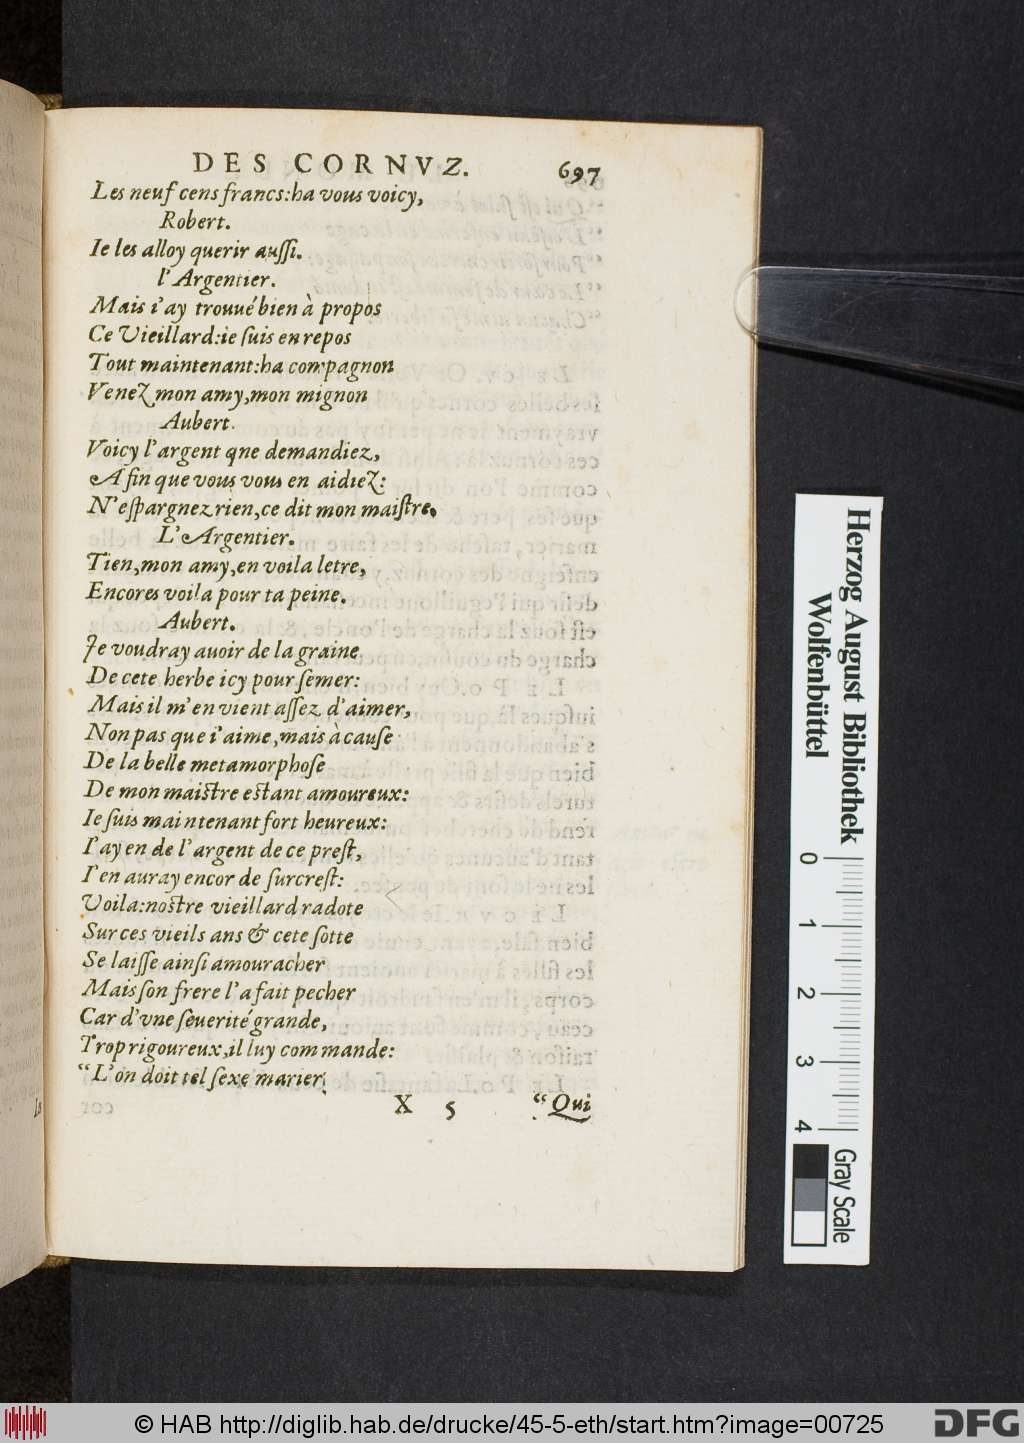 DES CORNVZ. 697
Les neuf cens francs:ha vous voicy,
Robert.
Ie les alloy querir auſſi.
l'Argentier.
Mais i'ay trouué bien à propos
Ce Vieillard:ie ſuis en repos
Tout maintenant:ha compagnon
Venez mon amy,mon mignon
Aubert.
Voicy l'argent qne demandiez,
Afin que vous vous en aidiez:
N'eſpargnez rien,ce dit mon maiſtre.
L'Argentier.
Tien,mon amy,en voila letre,
Encores voila pour ta peine.
Aubert.
Je voudray auoir de la graine
De cete herbe icy pour ſemer:
Mais il m'en vient aſſez d'aimer,
Non pas que i'aime,mais à cauſe
De la belle metamorphoſe
De mon maiſtre eſtant amoureux:
Ie ſuis maintenant fort heureux:
I'ay en de l'argent de ce preſt,
I'en auray encor de ſurcreſt:
Voila:noſtre vieillard radote
Sur ces vieils ans & cete ſotte
Se laiſſe ainſi amouracher
Mais ſon frere l'a fait pecher
Car d'vne ſeuerité grande,
Trop rigoureux,il luy commande:
"L'on doit tel ſexe marier,
X 5 "Qui
Herzog August Bibliothek
Wolfenbüttel
0 1 2 3 4
Gray Scale
© HAB http://diglib.hab.de/drucke/45-5-eth/start.htm?image=00725
DFG